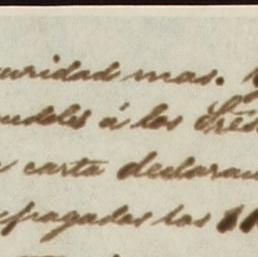 uridad mas. Y
andoles á los Tres
carta declaran
pagadas las 11